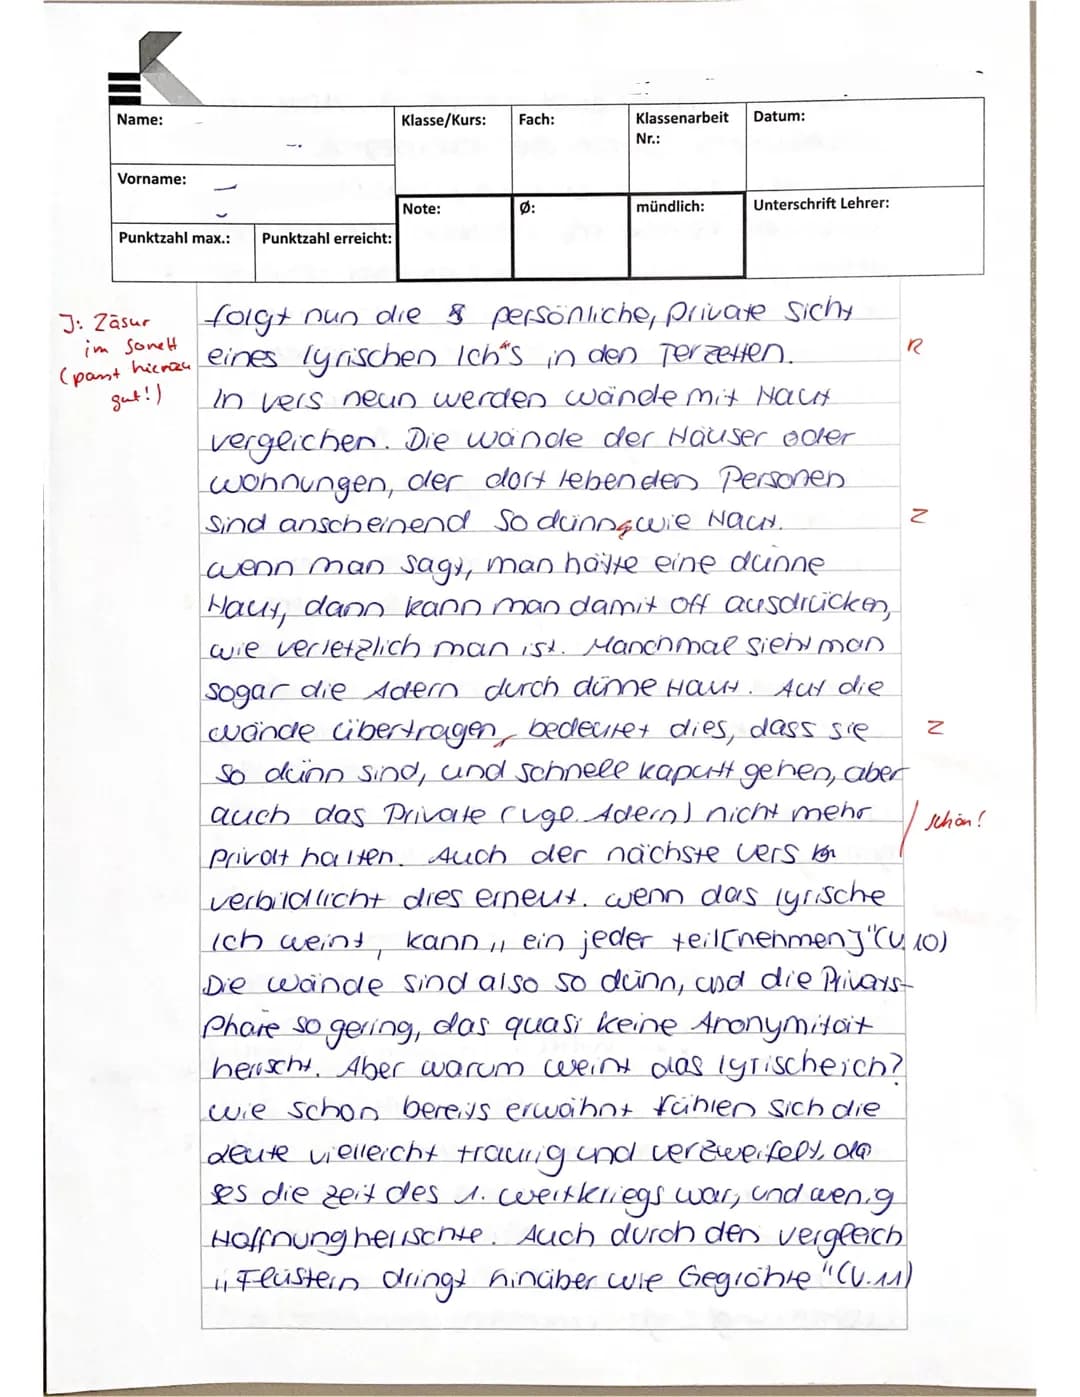 Name:
Klasse/Kurs:
Fach:
Klassenarbeit Nr.:
Datum:
Vorname:
Note:
Ø:
mündlich:
Unterschrift Lehrer:
Punktzahl max.:
Punktzahl erreicht:
J: Zäsur
im Sonett
(passt hierzu
gut!)
folgt nun die persönliche, private Sicht
eines lyrischen Ich's in den Terzetten.
R
In Vers neun werden Wände mit Haut
vergleichen. Die Wände der Häuser oder
Wohnungen, der dort lebenden Personen
sind anscheinend so dünn, wie Haut.
Z
Wenn man sagt, man hätte eine dünne
Haut, dann kann man damit oft ausdrücken,
wie verletzlich man ist. Manchmal sieht man
sogar die Adern durch dünne Haut. Auf die
Wände übertragen, bedeutet dies, dass sie
Z
so dünn sind, und schnell kaputt gehen, aber
auch das Private (vgl. Adern) nicht mehr
schön!
Privat halten. Auch der nächste Vers
verbildlicht dies erneut. Wenn das lyrische
Ich weint, kann „ein jeder teil[nehmen]"(V.10)
Die Wände sind also so dünn, und die Privats-
phäre so gering, das quasi keine Anonymität
herrscht. Aber warum weint das lyrische ich?
Wie schon bereits erwähnt fühlen sich die
Leute vielleicht traurig und verzweifelt, da
es die Zeit des 1. Weltkriegs war, und wenig
Hoffnung herrschte. Auch durch den Vergleich
„Flüstern dringt hinüber wie Gegröhle"(V.11)